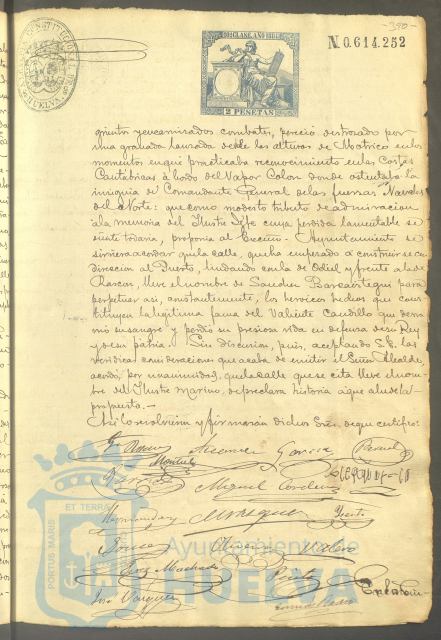 -390-
N 0.614.252
HUELVA
2 PESETAS
y encarnizados combates, pereció destrozado por
una granada lanzada desde las alturas de Motrico en los
momentos en que practicaba reconocimiento en las Costas
Cantábricas á bordo del Vapor Colon donde ostentaba la
insignia de Comandante General de las fuerzas Navales
del Norte: que como modesto tributo de admiracion
á la memoria del Ilustre Jefe cuya perdida lamentable se
siente todavia, proponia al Excmo. Ayuntamiento se
sirviera acordar que la calle, que ha empezado á construirse en
direccion al Puerto, lindando con la de Odiel y frente á la de
Rascon, lleve el nombre de Sanchez Barcaiztegui para
perpetuar asi, constantemente, los heroicos hechos que cons
tituyen la legitima fama del Valiente Caudillo que derra
mó su sangre y perdió su preciosa vida en defensa de su Rey
y de su patria. Sin discusion, pues, aceptando S.E. las
veridicas consideraciones que acaba de emitir el Señor Alcalde,
acordó, por unanimidad, que la calle que se cita lleve el nom-
bre del Ilustre Marino, de preclara historia á que alude la
propuesta.—
Asi lo resolvieron y firmarán dichos Sres. de que certifico:
Garcia
Montiel
Miguel
Hernandez
Machado
José Vazquez
PORTUS MARIS ET TERRAE
Ayuntamiento de
HUELVA